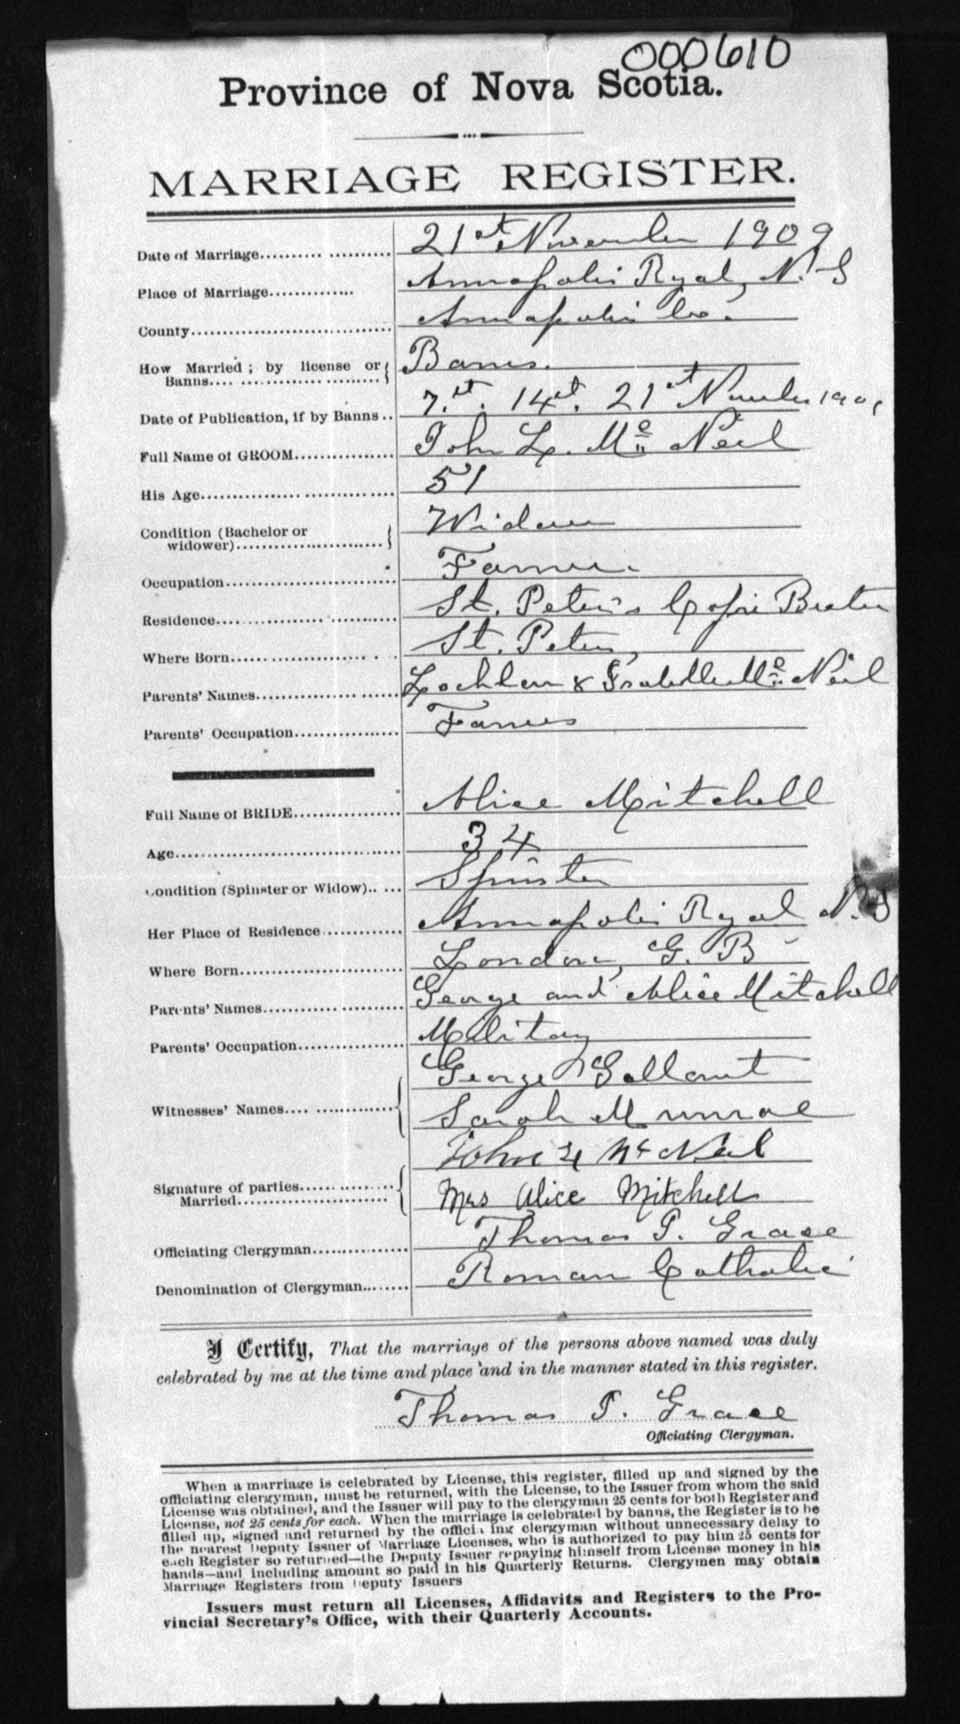 000610
Province of Nova Scotia.
MARRIAGE REGISTER.
Date of Marriage 21st November 1909
Place of Marriage Annapolis Royal, N. S
County Annapolis Co.
How Married ; by license or Banns Banns.
Date of Publication, if by Banns 7.st. 14st. 21st November 190
Full Name of GROOM John L. Mc Neil
His Age 51
Condition (Bachelor or widower) Widower
Occupation Farmer.
Residence St. Peter's Cape Breton
Where Born St. Peters,
Parents' Names Lochlan & Isabella Mc Neil
Parents' Occupation Farmers
Full Name of BRIDE Alice Mitchell
Age 34
Condition (Spinster or Widow) Spinster
Her Place of Residence Annapolis Royal N. S
Where Born London, G. B
Parents' Names George and Alice Mitchell
Parents' Occupation Military
Witnesses' Names George Gallant
Sarah Munroe
Signature of parties Married John L McNeil
Mrs Alice Mitchell
Officiating Clergyman Thomas P. Grace
Denomination of Clergyman Roman Catholic
I Certify, That the marriage of the persons above named was duly
celebrated by me at the time and place and in the manner stated in this register.
Thomas P. Grace
Officiating Clergyman.
When a marriage is celebrated by License, this register, filled up and signed by the
officiating clergyman, must be returned, with the License, to the Issuer from whom the said
License was obtained, and the Issuer will pay to the clergyman 25 cents for both Register and
License, not 25 cents for each. When the marriage is celebrated by banns, the Register is to be
filled up, signed and returned by the officiating clergyman without unnecessary delay to
the nearest Deputy Issuer of Marriage Licenses, who is authorized to pay him 25 cents for
each Register so returned—the Deputy Issuer repaying himself from License money in his
hands—and including amount so paid in his Quarterly Returns. Clergymen may obtain
Marriage Registers from Deputy Issuers
Issuers must return all Licenses, Affidavits and Registers to the Pro-
vincial Secretary's Office, with their Quarterly Accounts.